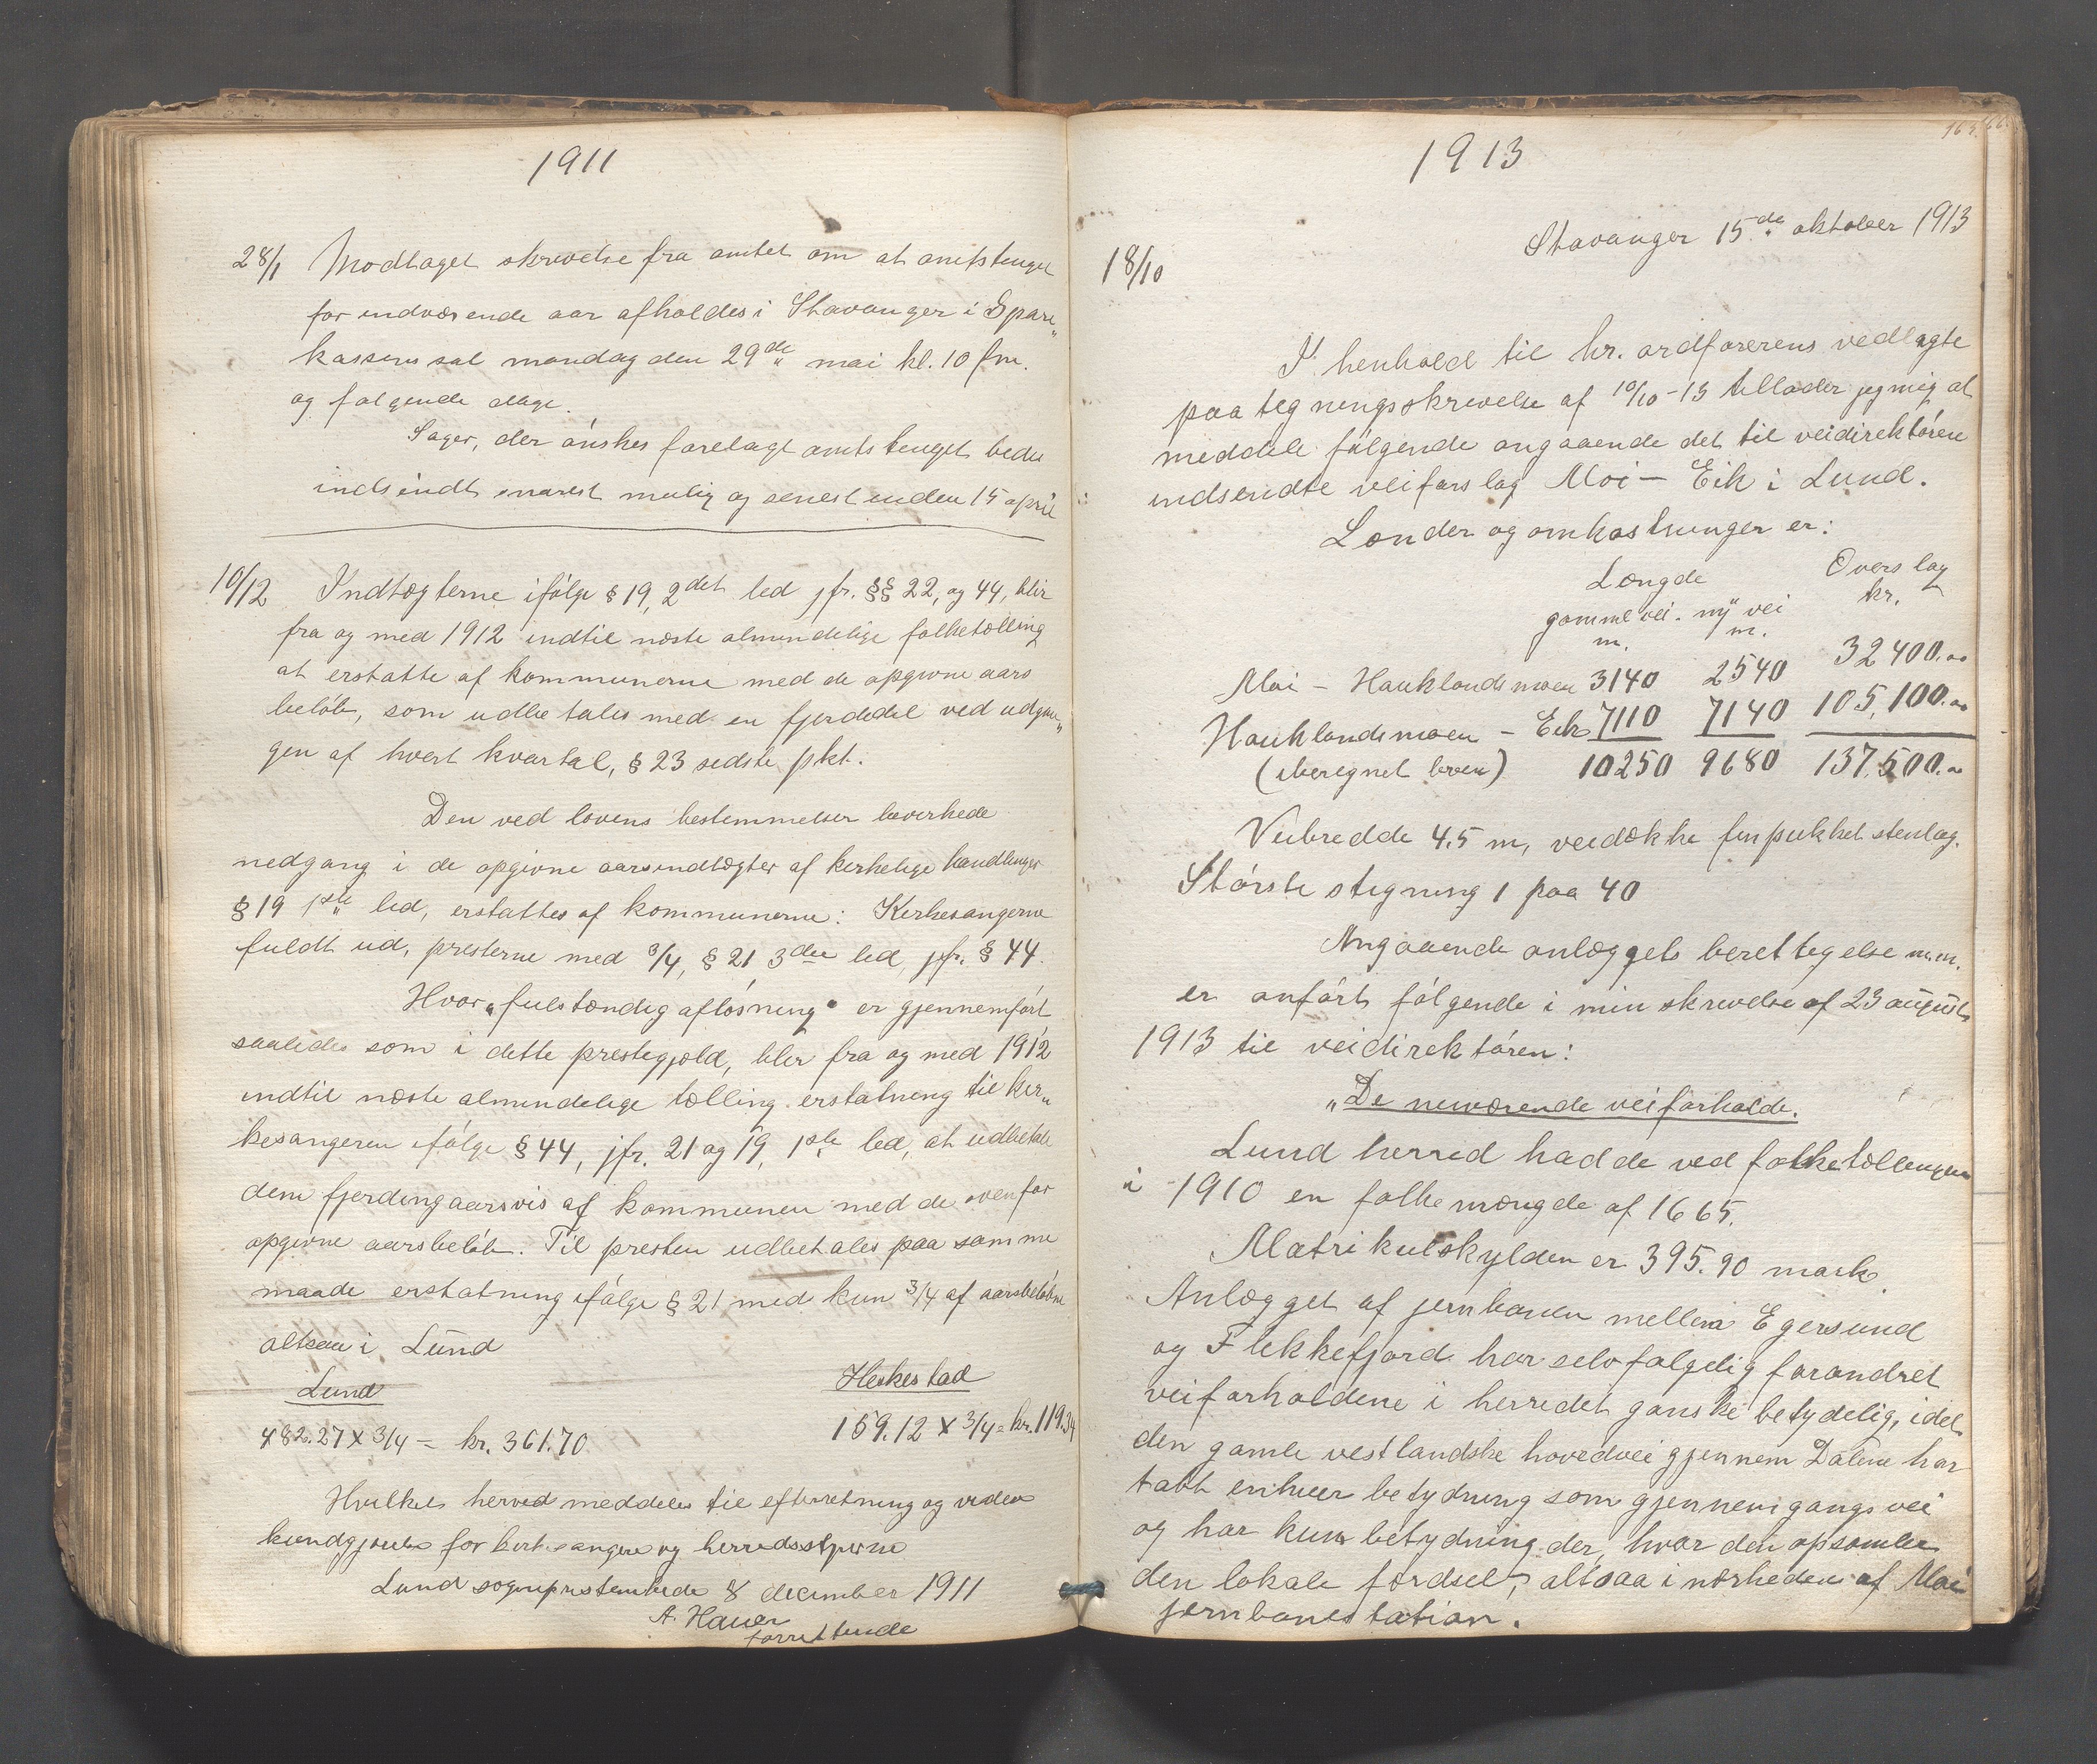 1911
28/1 Modtaget skrivelse fra amtet om at amtstinget
for indværende aar afholdes i Stavanger i Spare„
kassens sal mandag den 29de mai kl. 10 fm.
og følgende dage.
Sager, der ónskes foretaget amtstinget bedes
indsendt snarest mulig og senest inden 15 april
10/12 Indtægterne ifólge § 19, 2det led jfr. §§ 22, og 44, blir
fra og med 1912 indtil næste almindelige folketælling
at erstatte af kommunerne med de opgivne aars
belób, som udbetales med en fjerdedel ved udgan„
gen af hvert kvartal, § 23 sidste pkt.
Den ved lovens bestemmelser bevirkede
nedgang i de opgivne aarsindtægter af kirkelige handlinger
§ 19 1ste led, erstattes af kommunerne: Kirkesangerne
fuldt ud, presterne med 3/4, § 21 3die led, jfr. § 44.
Hvor „fulstændig aflósning“ er gjennemfórt
saaledes som i dette prestegjæld, blir fra og med 1912
indtil næste almindelige tælling erstatning til kir„
kesangeren ifólge § 44, jfr. 21 og 19, 1ste led, at udbetale
dem fjerdingaarsvis af kommunen med de ovenfor
opgivne aarsbelób. Til presten udbetales paa samme
maade erstatning ifólge § 21 med kun 3/4 af aarsbelóbene
altsaa i Lund
Lund Heskestad
482.27 x 3/4 = kr. 361.70 159.12 x 3/4 = kr. 119.34
Hvilket herved meddeles til efterretning og videre
kundgjórelse for kirkesangere og herredsstyrerne
Lund sogneprestembede 8 december 1911
A. Hauer
forrettende
1913
Stavanger 15de oktober 1913
18/10
I henhold til hr. ordførerens vedlagte
paategningsskrivelse af 10/10-13 tillader jeg mig at
meddele fólgende angaaende det til veidirektóren
indsendte veiforslag Moi – Eik i Lund.
Længder og omkostninger er:
Længde Overslag
gamme vei. ny vei kr.
m. m.
Moi – Hauklandsmoen 3140 2540 32400.00
Hauklandsmoen – Eik 7110 7140 105,100.00
(iberegnet broen) 10250 9680 137,500.00
Veibredde 4.5 m, veidække finpukket stenlag.
Stórste stigning 1 paa 40
Angaaende anlæggets berettigelse m.m.
er anfórt fólgende i min skrivelse af 23 august
1913 til veidirektóren:
„De nuværende veiforholde.
Lund herred hadde ved folketællingen
i 1910 en folkemængde af 1665.
Matrikulskylden er 395.90 mark
Anlægget af jernbanen mellem Egersund
og Flekkefjord har selvfølgelig forandret
veiforholdene i herredet ganske betydelig, idet
den gamle vestlandske hovedvei gjennem Dalene har
tabt enhver betydning som gjennemgangsvei
og har kun betydning der, hvor den opsamler
den lokale færdsel, altsaa i nærheden af Moi
jernbanestation.